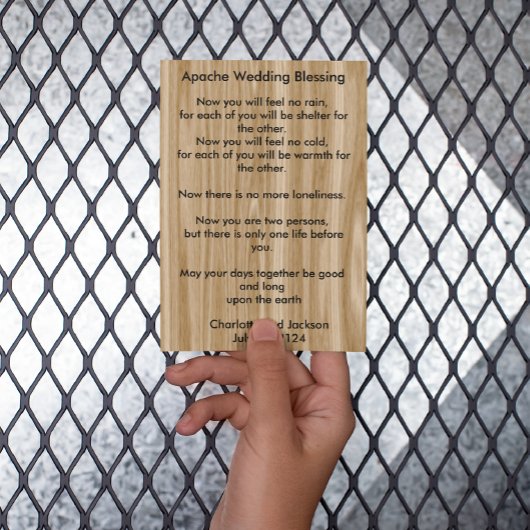 Apache Wedding Blessing
Now you will feel no rain,
for each of you will be shelter for
the other.
Now you will feel no cold,
for each of you will be warmth for
the other.
Now there is no more loneliness.
Now you are two persons,
but there is only one life before
you.
May your days together be good
and long
upon the earth
Jackson